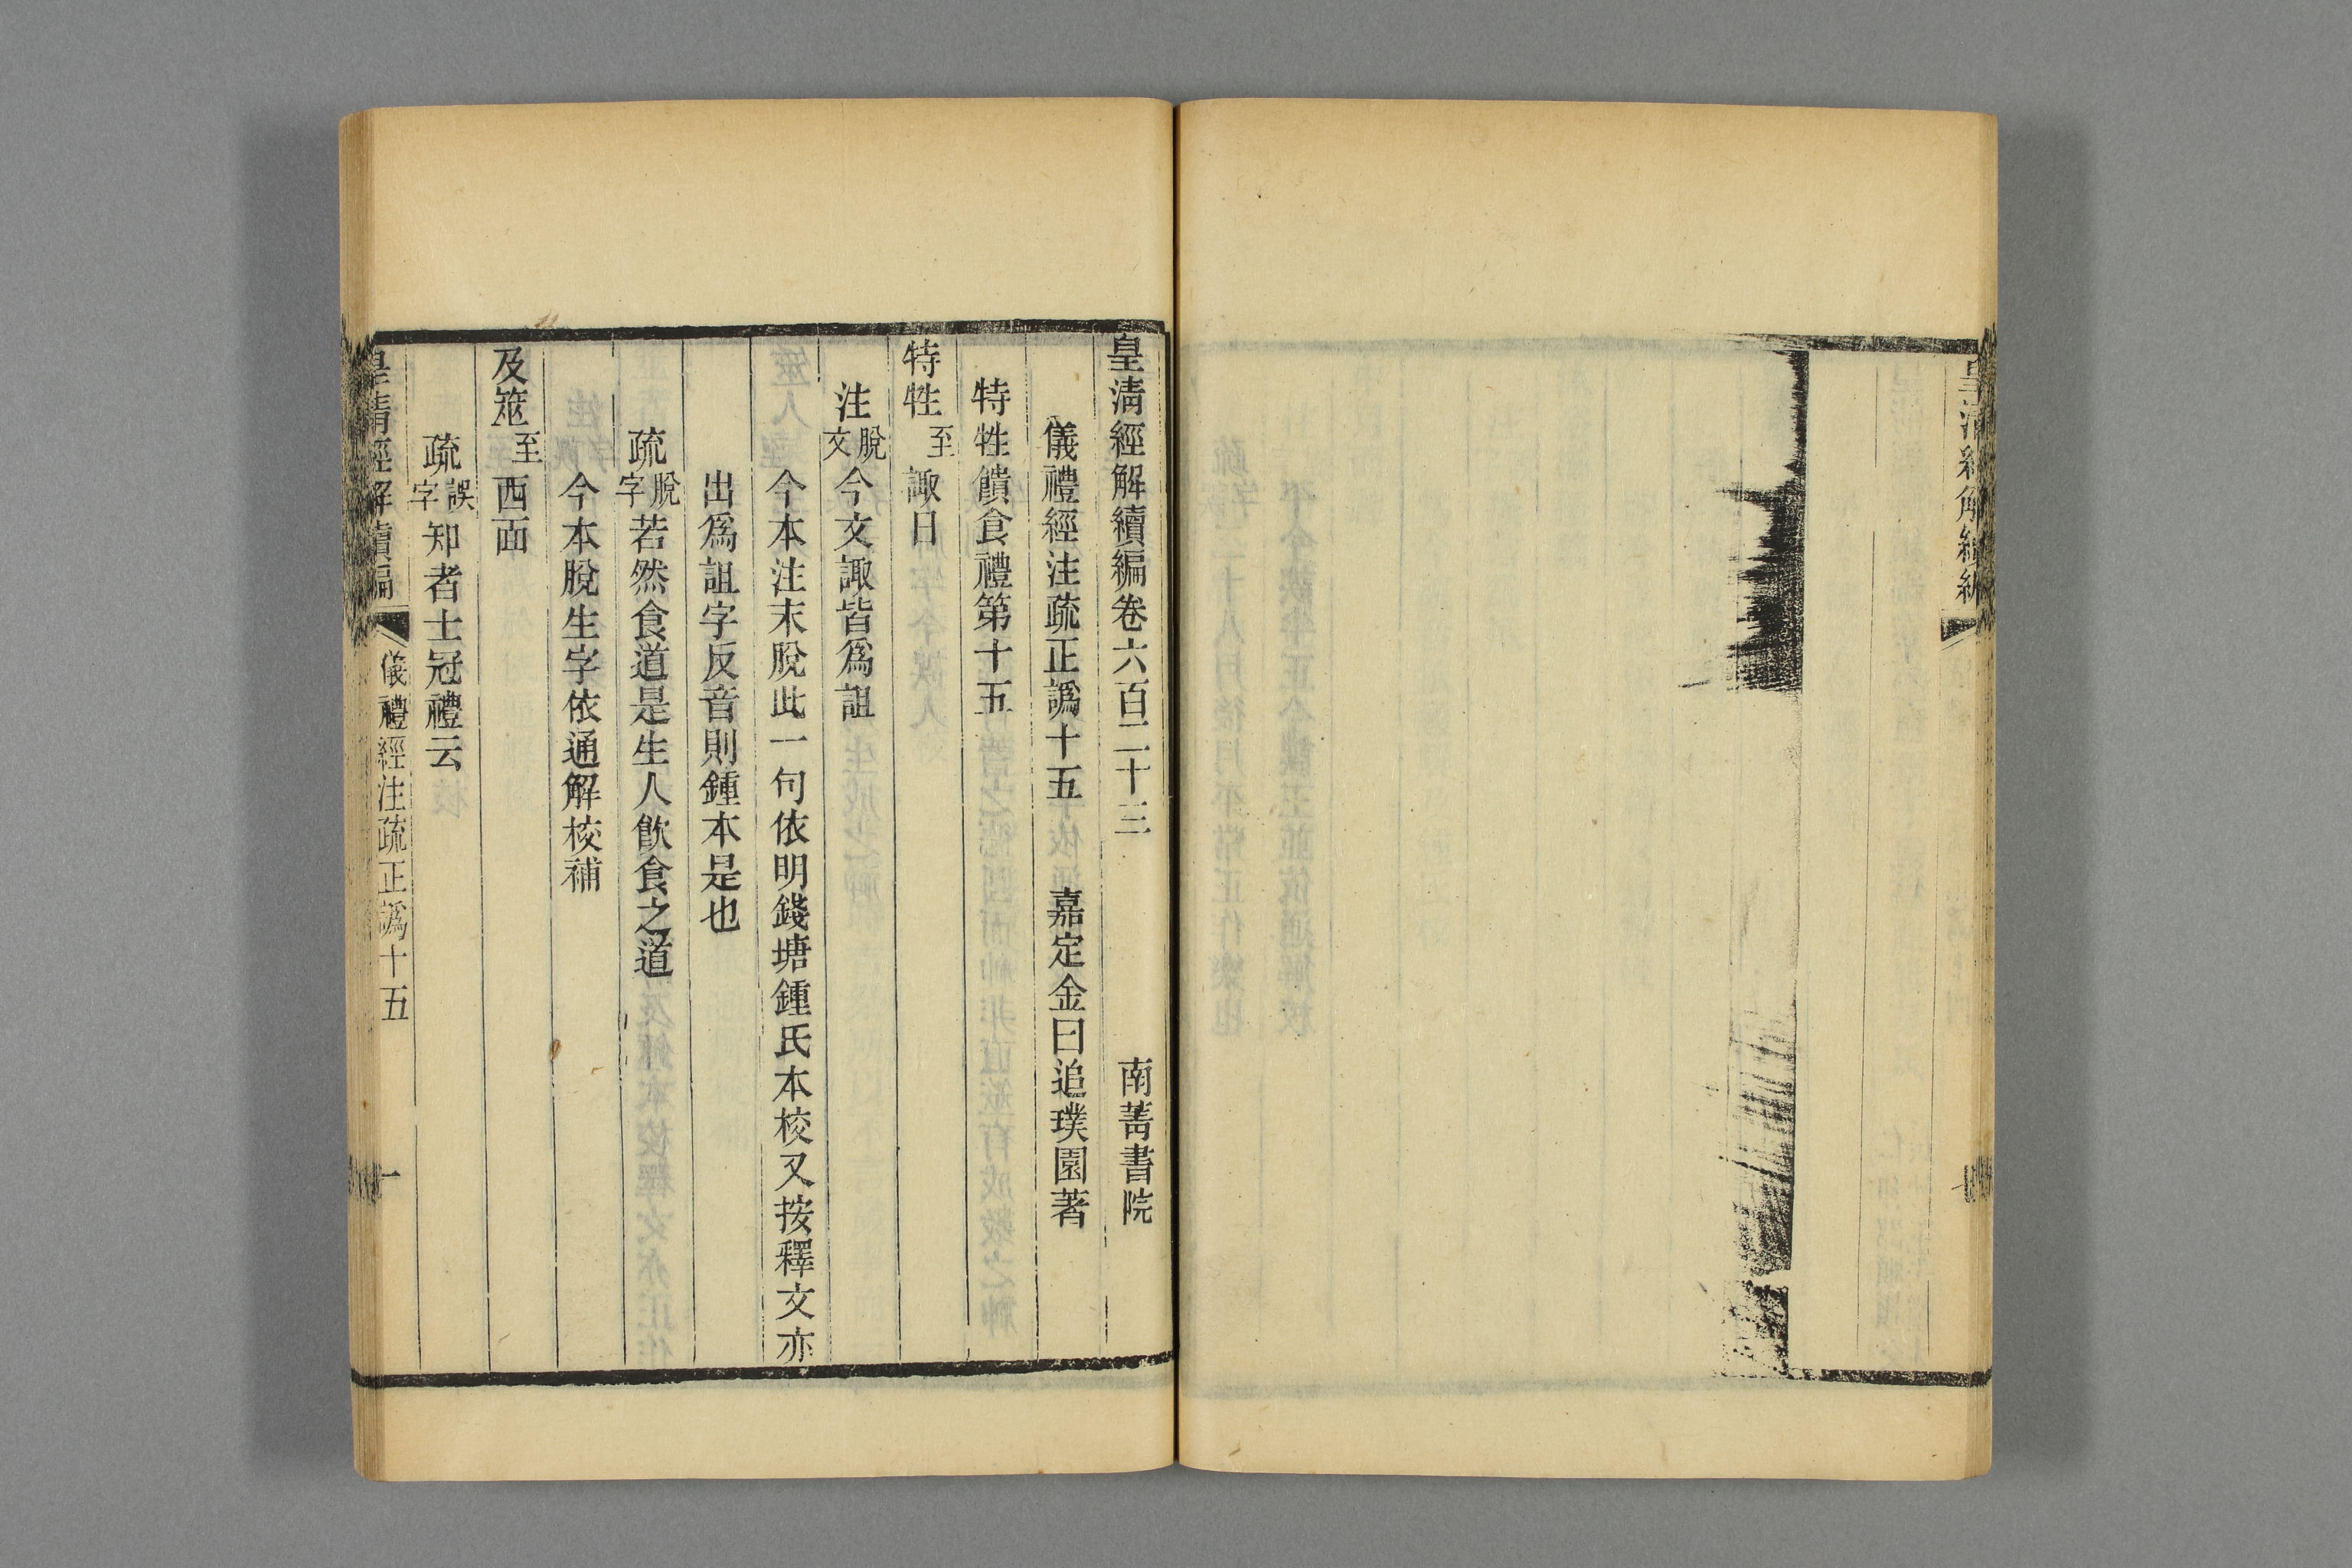 皇清經解續編卷六百二十三 南菁書院
儀禮經注疏正譌十五 嘉定金曰追璞園著
特牲饋食禮第十五
特牲至諏日
注脫文今文諏皆爲詛
今本注末脫此一句依明錢塘鍾氏本校又按釋文亦
出爲詛字反音則鍾本是也
疏脫字若然食道是生人飲食之道
今本脫生字依通解校補
及筮至西面
疏誤字知者士冠禮云
皇清經解續編 儀禮經注疏正譌十五 一